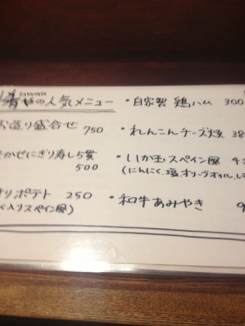 の人気メニュー
お造り盛合せ 750
かせにぎり寿し5貫
500
ポテト 250
スペイン風)
・自家製 鶏ハム 300
・れんこんチーズ焼 38
・いか玉スペイン風
(にんにく、塩、オリーブオイル、
・和牛あみやき